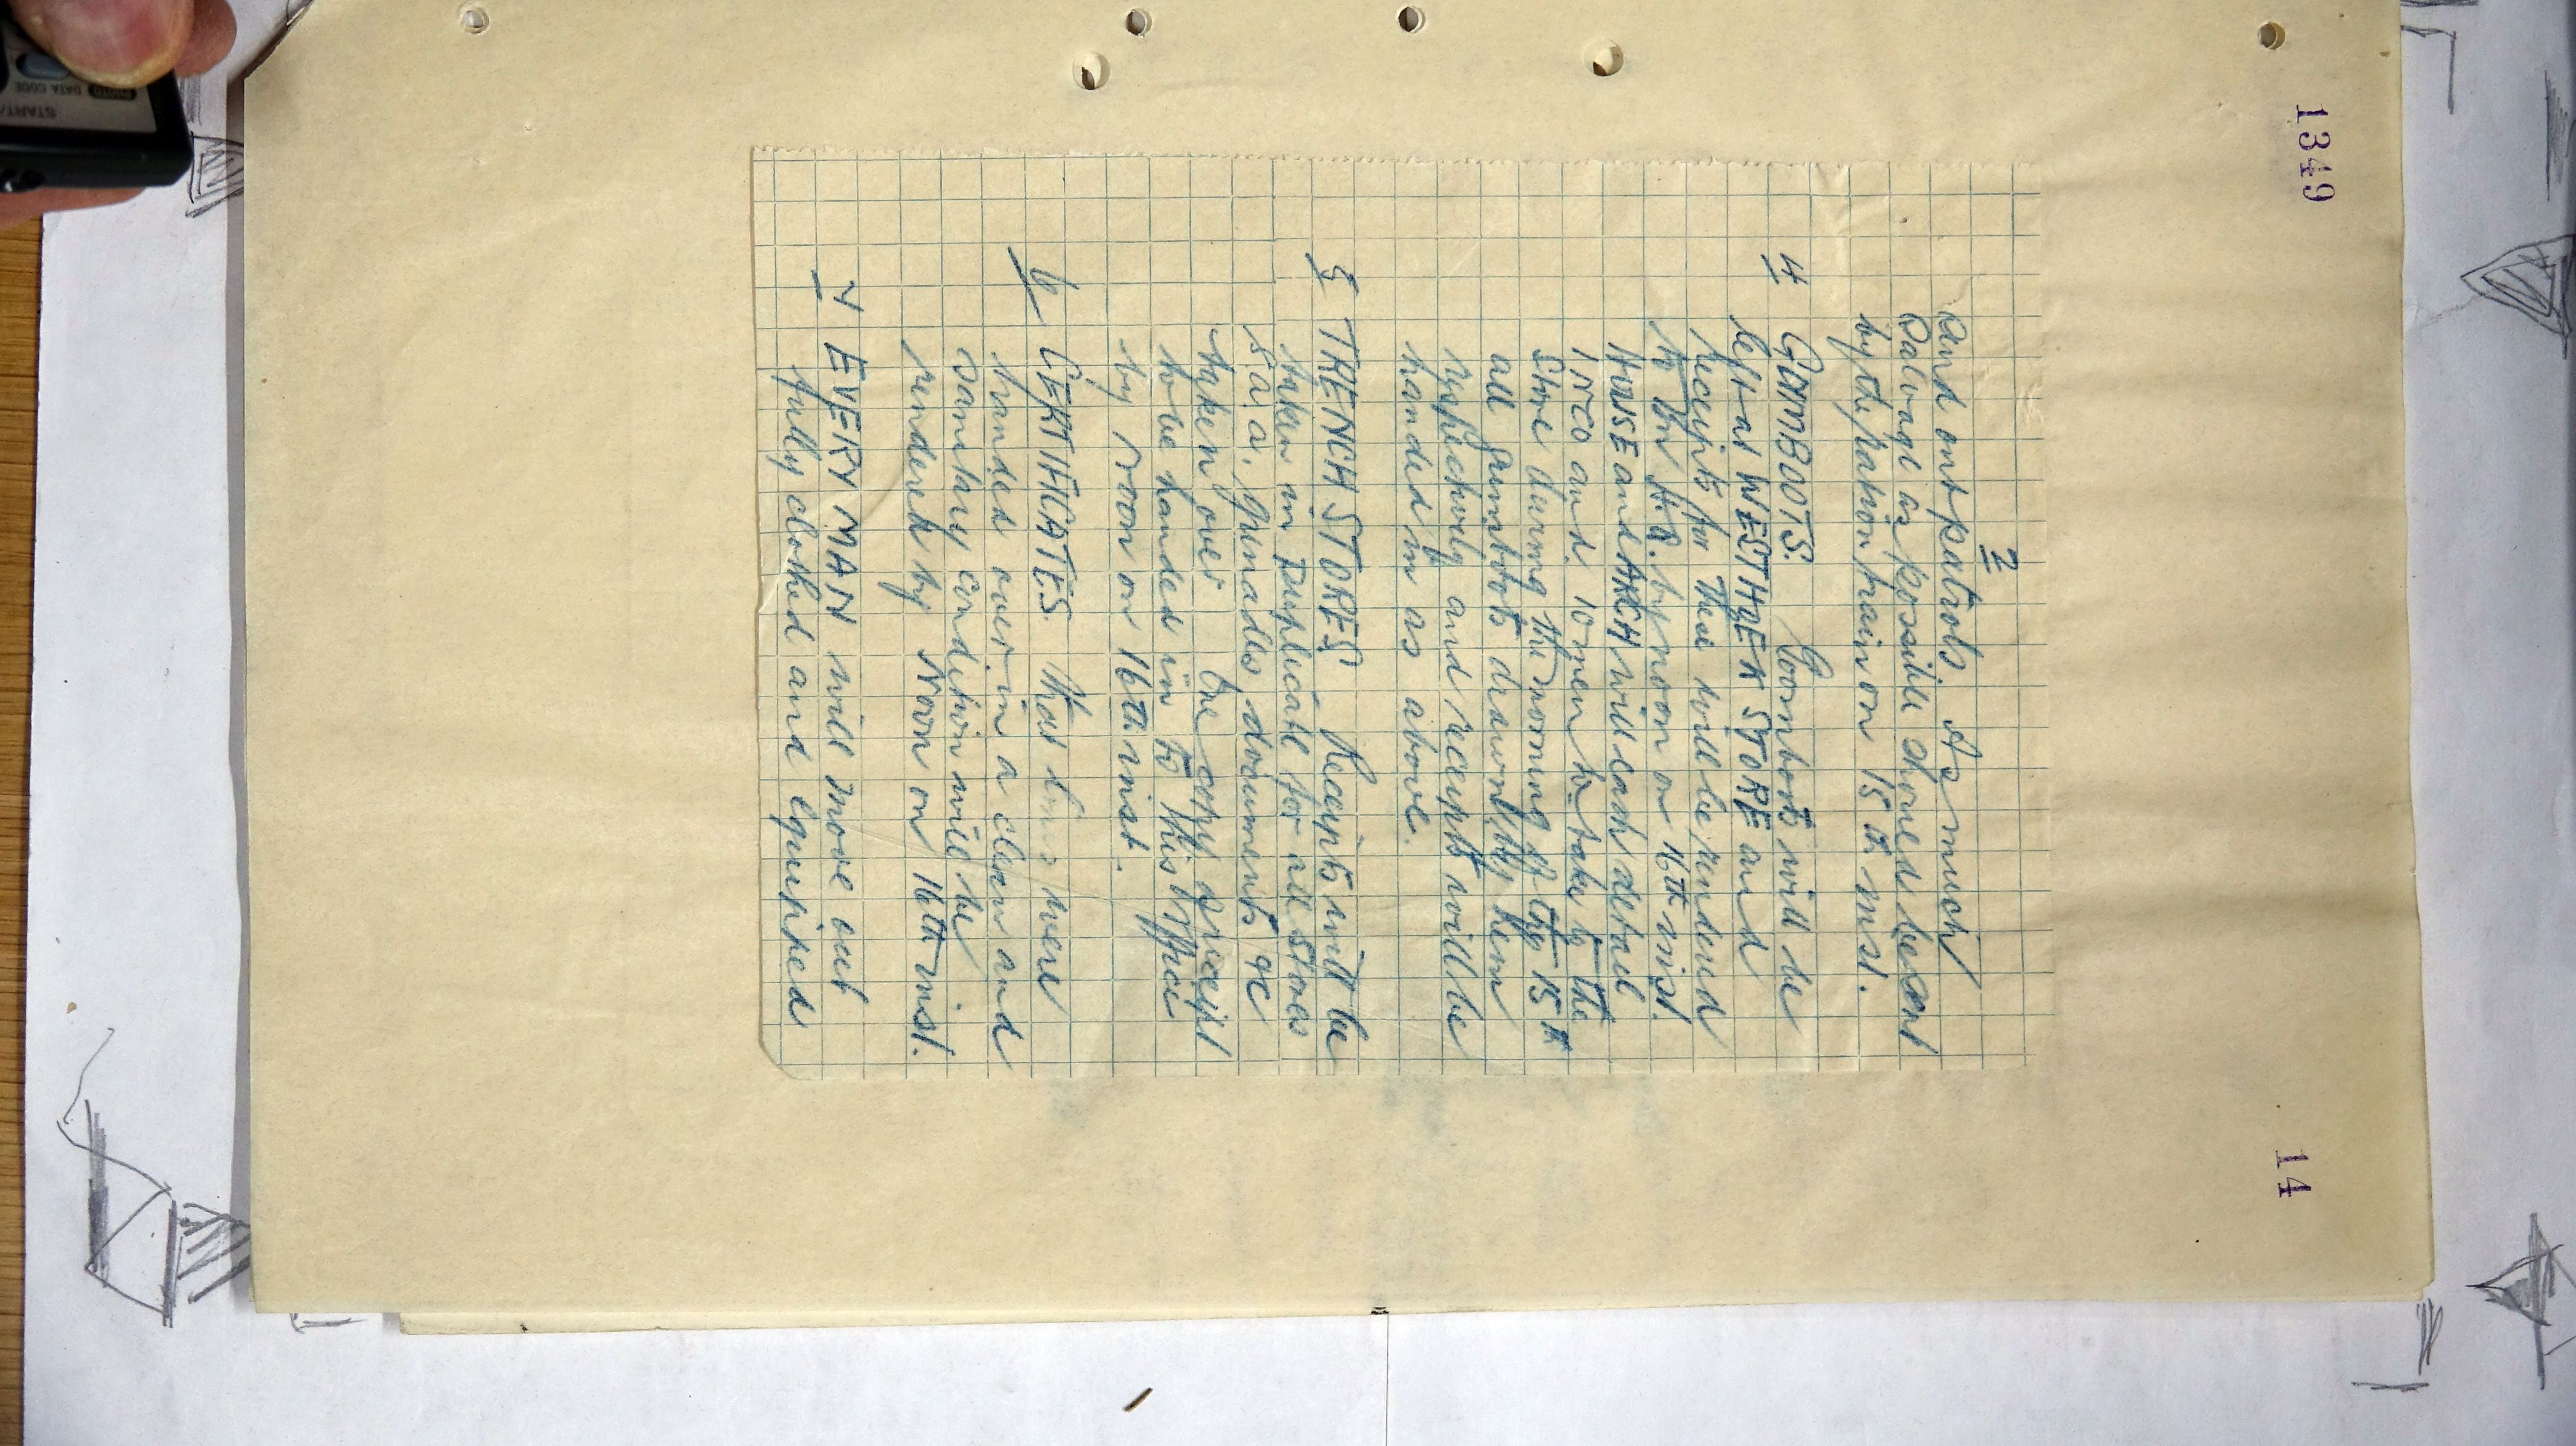 1349
14
2
and out patrols. As much
Salvage as possible should be sent
by the ration train on 15th inst.
4 GUMBOOTS. Goomboots will be
left at WESTHOEK STORE and
receipts for these will be rendered
to Bn H.Q. by noon on 16th inst.
HOUSE and ARCH will each detail
1 NCO and 10 men to take to the
Store during the morning of the 15th
all Gumboots drawn by them
respectively and receipts will be
handed in as above.
5 TRENCH STORES - Receipts will be
taken in Duplicate for all stores
S.a.a. grenades documents &c
taken over. One copy of receipt
to be handed in to this office
by noon on 16th inst.
6 CERTIFICATES that lines were
handed over in a clean and
sanitary condition will be
rendered by Noon on 16th inst.
7 EVERY MAN will move out
fully clothed and equipped
START/
PHOTO DATA CODE